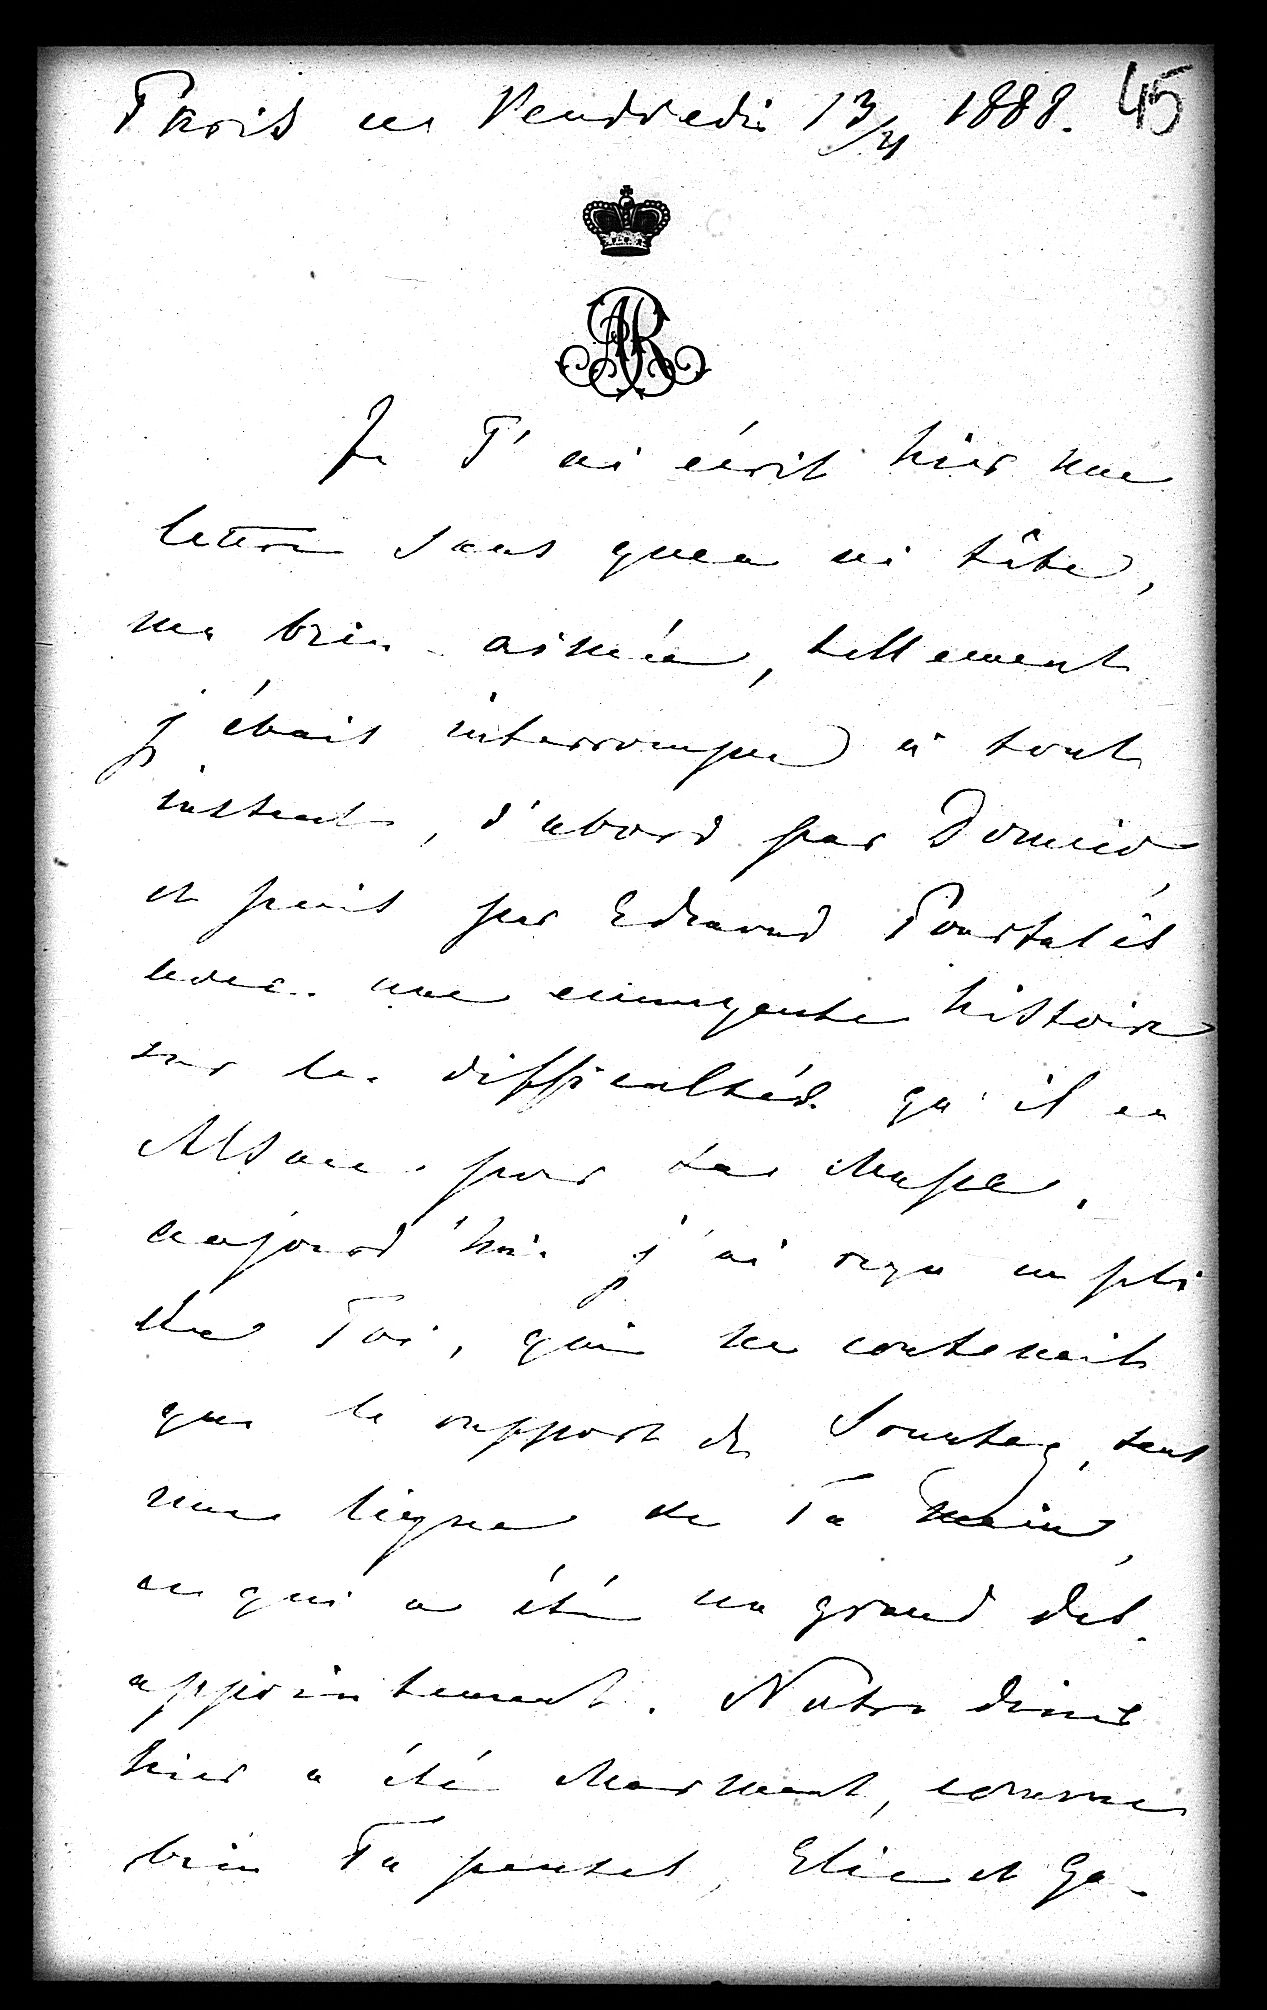 Paris ce Vendredi 13/4 1888. 45
AR
Je T'ai écrit hier une
lettre sans queue ni tête,
ma bien-aimée, tellement
j'étais interrompu à tout
instant, d'abord par
et puis par Edmond Pourtalès
avec une ennuyante histoire
sur les difficultés qu'il a en
Alsace pour sa chasse.
aujourd'hui j'ai reçu un pli
de Toi, qui ne contenait
que le rapport de Sonntag, sans
une ligne de Ta main,
ce qui a été un grand dés-
appointement. Notre diner
hier a été charmant, comme
bien Tu penses, Elie et Ga-